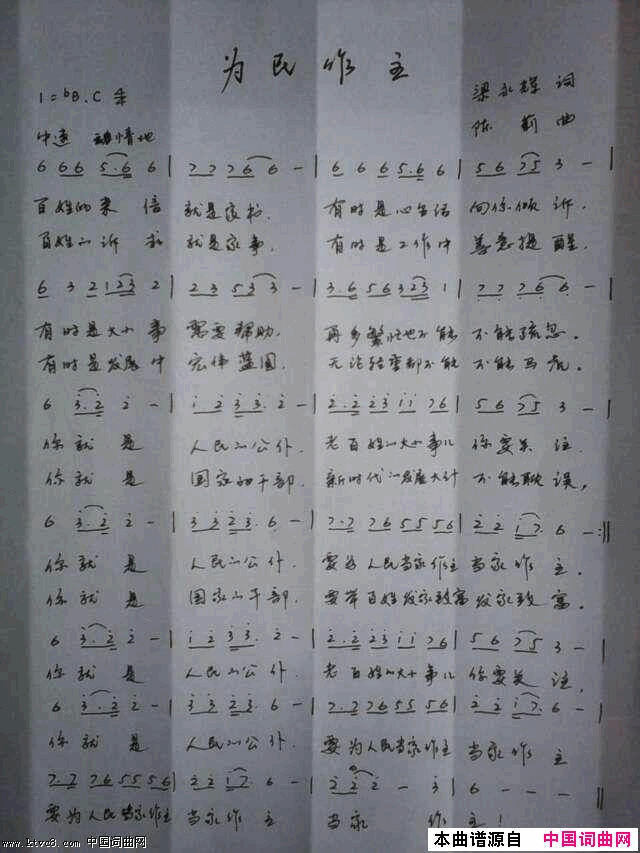 为民作主
1=bB、C 调
梁永辉 词
中速 动情地
陈莉 曲
6 66 5·6 6 | 7 7 76 6 | 6 6 6 5·6 6 | 5 6 75 3 - |
百姓的来信 就是家书, 有时是心里话 向你倾诉.
百姓的诉求 就是家事, 有时是工作中 善意提醒.
6 3 2123 2 | 2 3 53 3 - | 3·6 56 323 1 | 7 7 76 6 - |
有时是大小事 需要帮助. 再多繁忙也不能 不能疏忽.
有时是发展中 宏伟蓝图. 无论轻重都不能 不能马虎.
6 3·2 2 - | 1 2 3 3·2 - | 2·2 23 11 76 | 5 6 75 3 - |
你就是 人民的公仆. 老百姓的大小事儿 你要关注.
你就是 国家的干部. 新时代的发展大计 不能耽误,
6 3·2 2 - | 3 3 23·6 - | 7·7 76 55 56 | 2 2 17·6 - :||
你就是 人民的公仆. 要为人民当家作主 当家作主.
你就是 国家的干部. 要带百姓发家致富 发家致富.
6 3·2 2 - | 1 2 33·2 - | 2·2 23 11 76 | 5 6 75 3 - |
你就是 人民的公仆. 老百姓的大小事儿 你要关注,
6 3·2 2 - | 3 3 23·6 - | 7·7 76 55 56 | 2 2 17·6 - |
你就是 人民的公仆. 要为人民当家作主 当家作主
7·7 76 55 56 | 2 2 17 6 - | 2 2 2 - 3 | 6 - - - ||
要为人民当家作主 当家作主 当家作主!
www.ktvc8.com 中国词曲网
本曲谱源自 中国词曲网